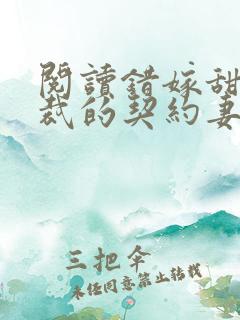 閱讀錯嫁甜
裁的契約妻
三把伞
未经同意禁止转载